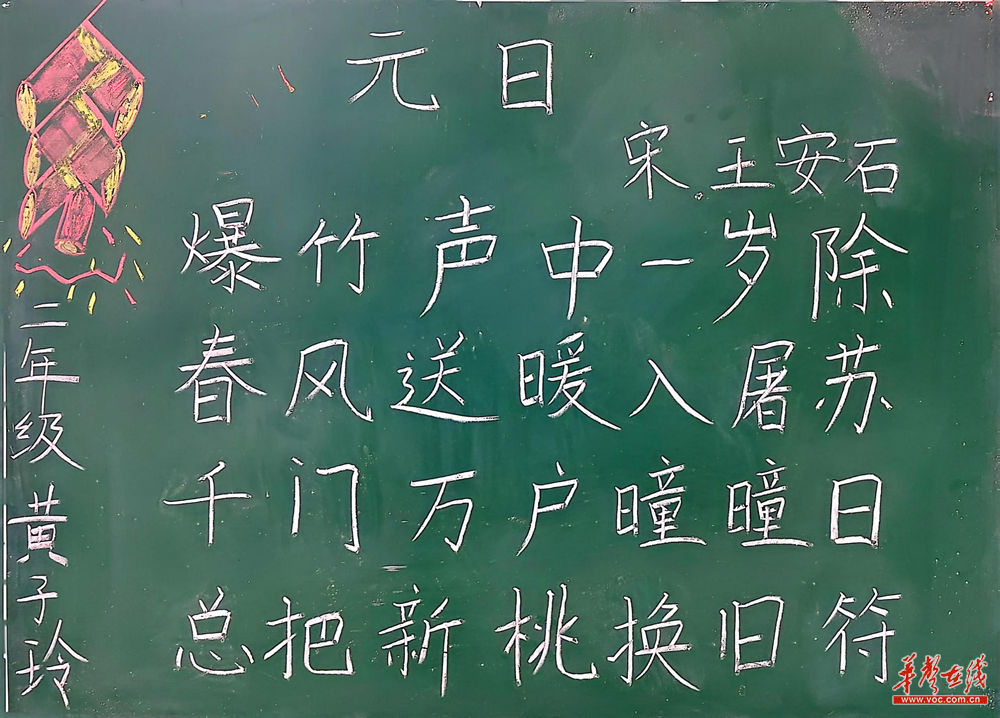 元日
宋 王安石
爆竹声中一岁除
春风送暖入屠苏
千门万户曈曈日
总把新桃换旧符
二年级 黄子玲
华声在线
www.voc.com.cn